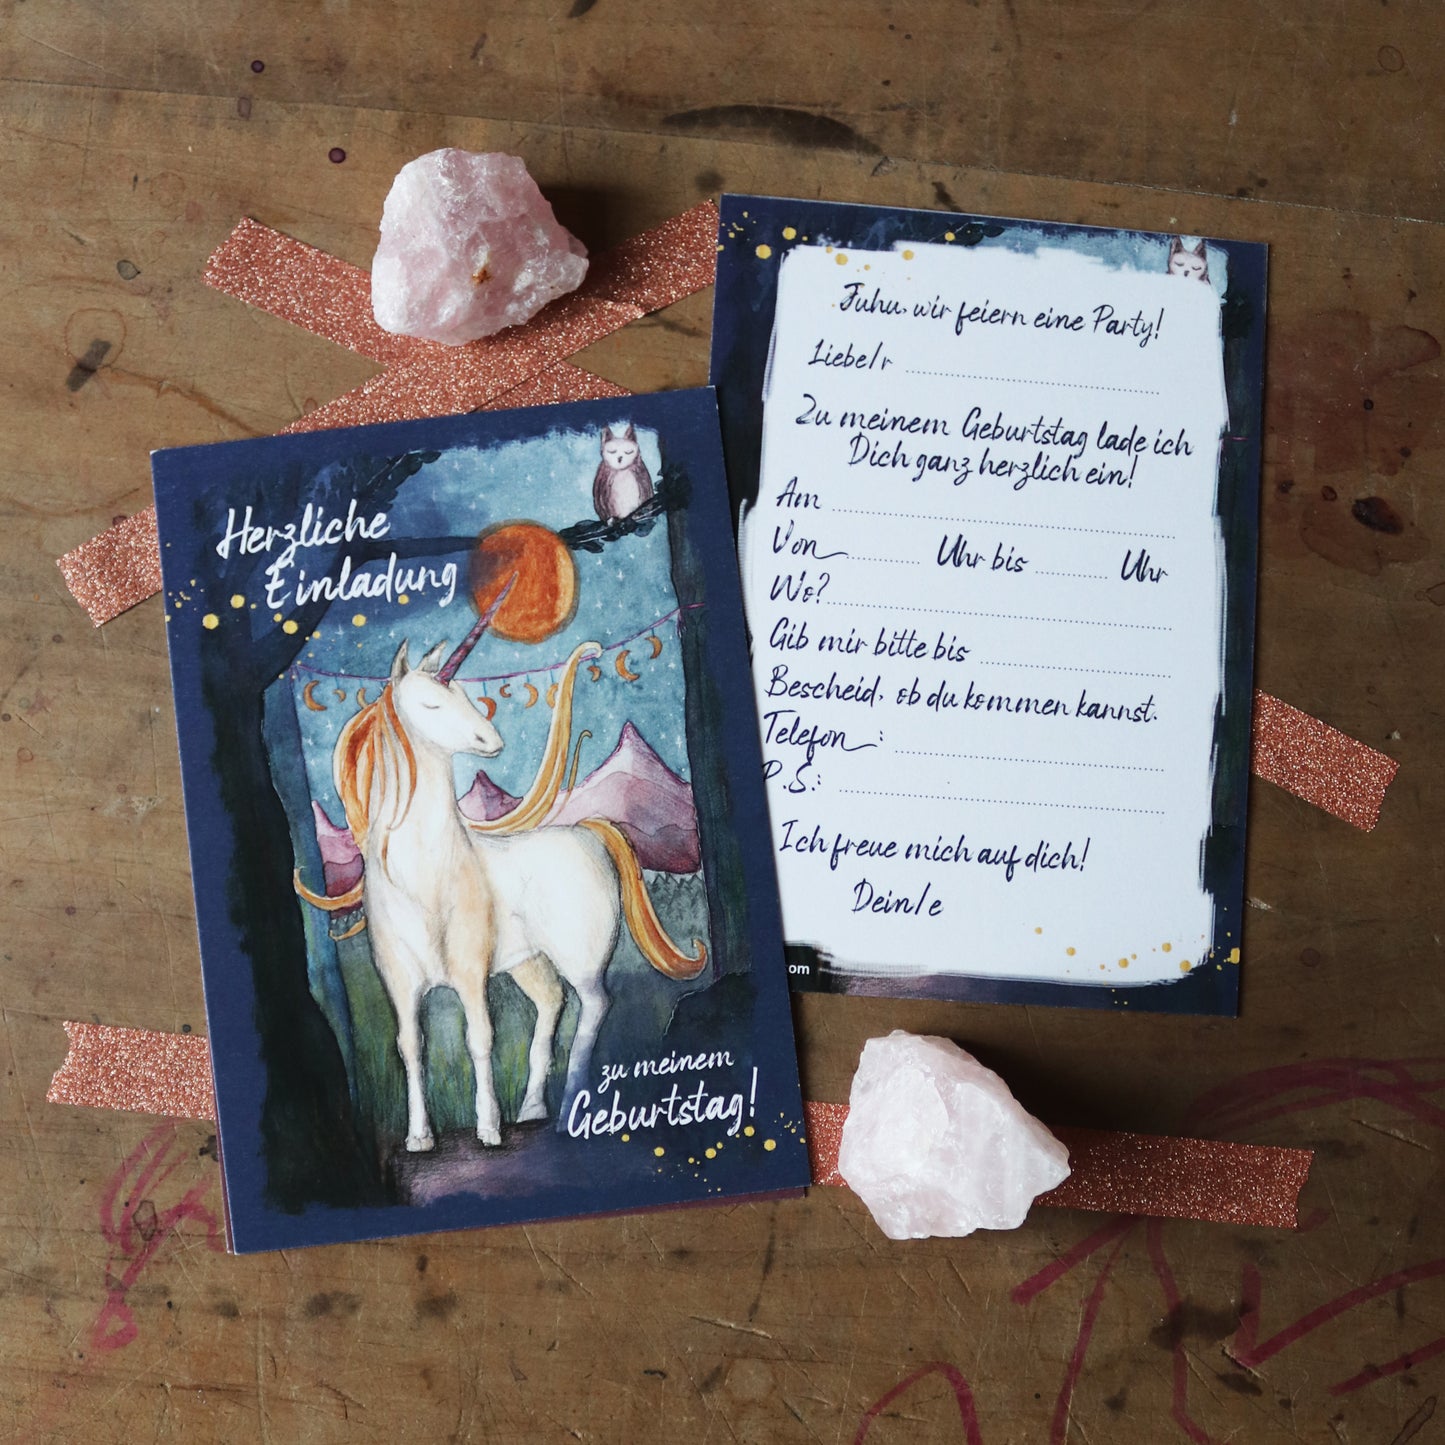 Herzliche
Einladung
zu meinem
Geburtstag!
Juhu, wir feiern eine Party!
Liebe/r
Zu meinem Geburtstag lade ich
Dich ganz herzlich ein!
Am
Von Uhr bis Uhr
Wo?
Gib mir bitte bis
Bescheid, ob du kommen kannst.
Telefon:
P.S.:
Ich freue mich auf dich!
Dein/e
om